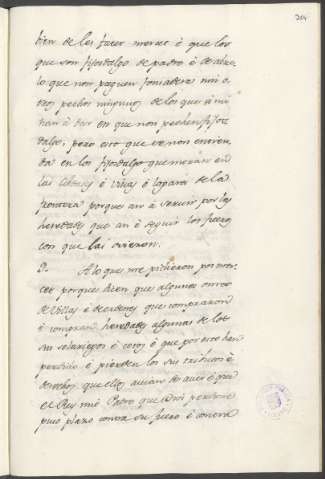 bien de les fazer merced è que los
que son fijosdalgo de padre è de abue
lo que non paguen fonsadera nin o
tros pechos ningunos de los que à mi
han à dar en que non pechen fijos
dalgo, pero esto que se non entien
da en los fijosdalgo que moran en
las Cibdades è Villas è logares de la
frontera porque an à servir por las
heredades que an è seguir los fueros
con que las ovieron.
9. A lo que me pidieron por mer
cet porque dicen que algunos omes
de Villas è de ordenes que compraron
è compran heredades algunas de los
sus solariegos è cotos è que por esto han
perdido è pierden los sus tributos è
derechos que ellos avian de aver è que
el Rey mio Padre que Dios perdone
puso plazo contra su fuero è contra